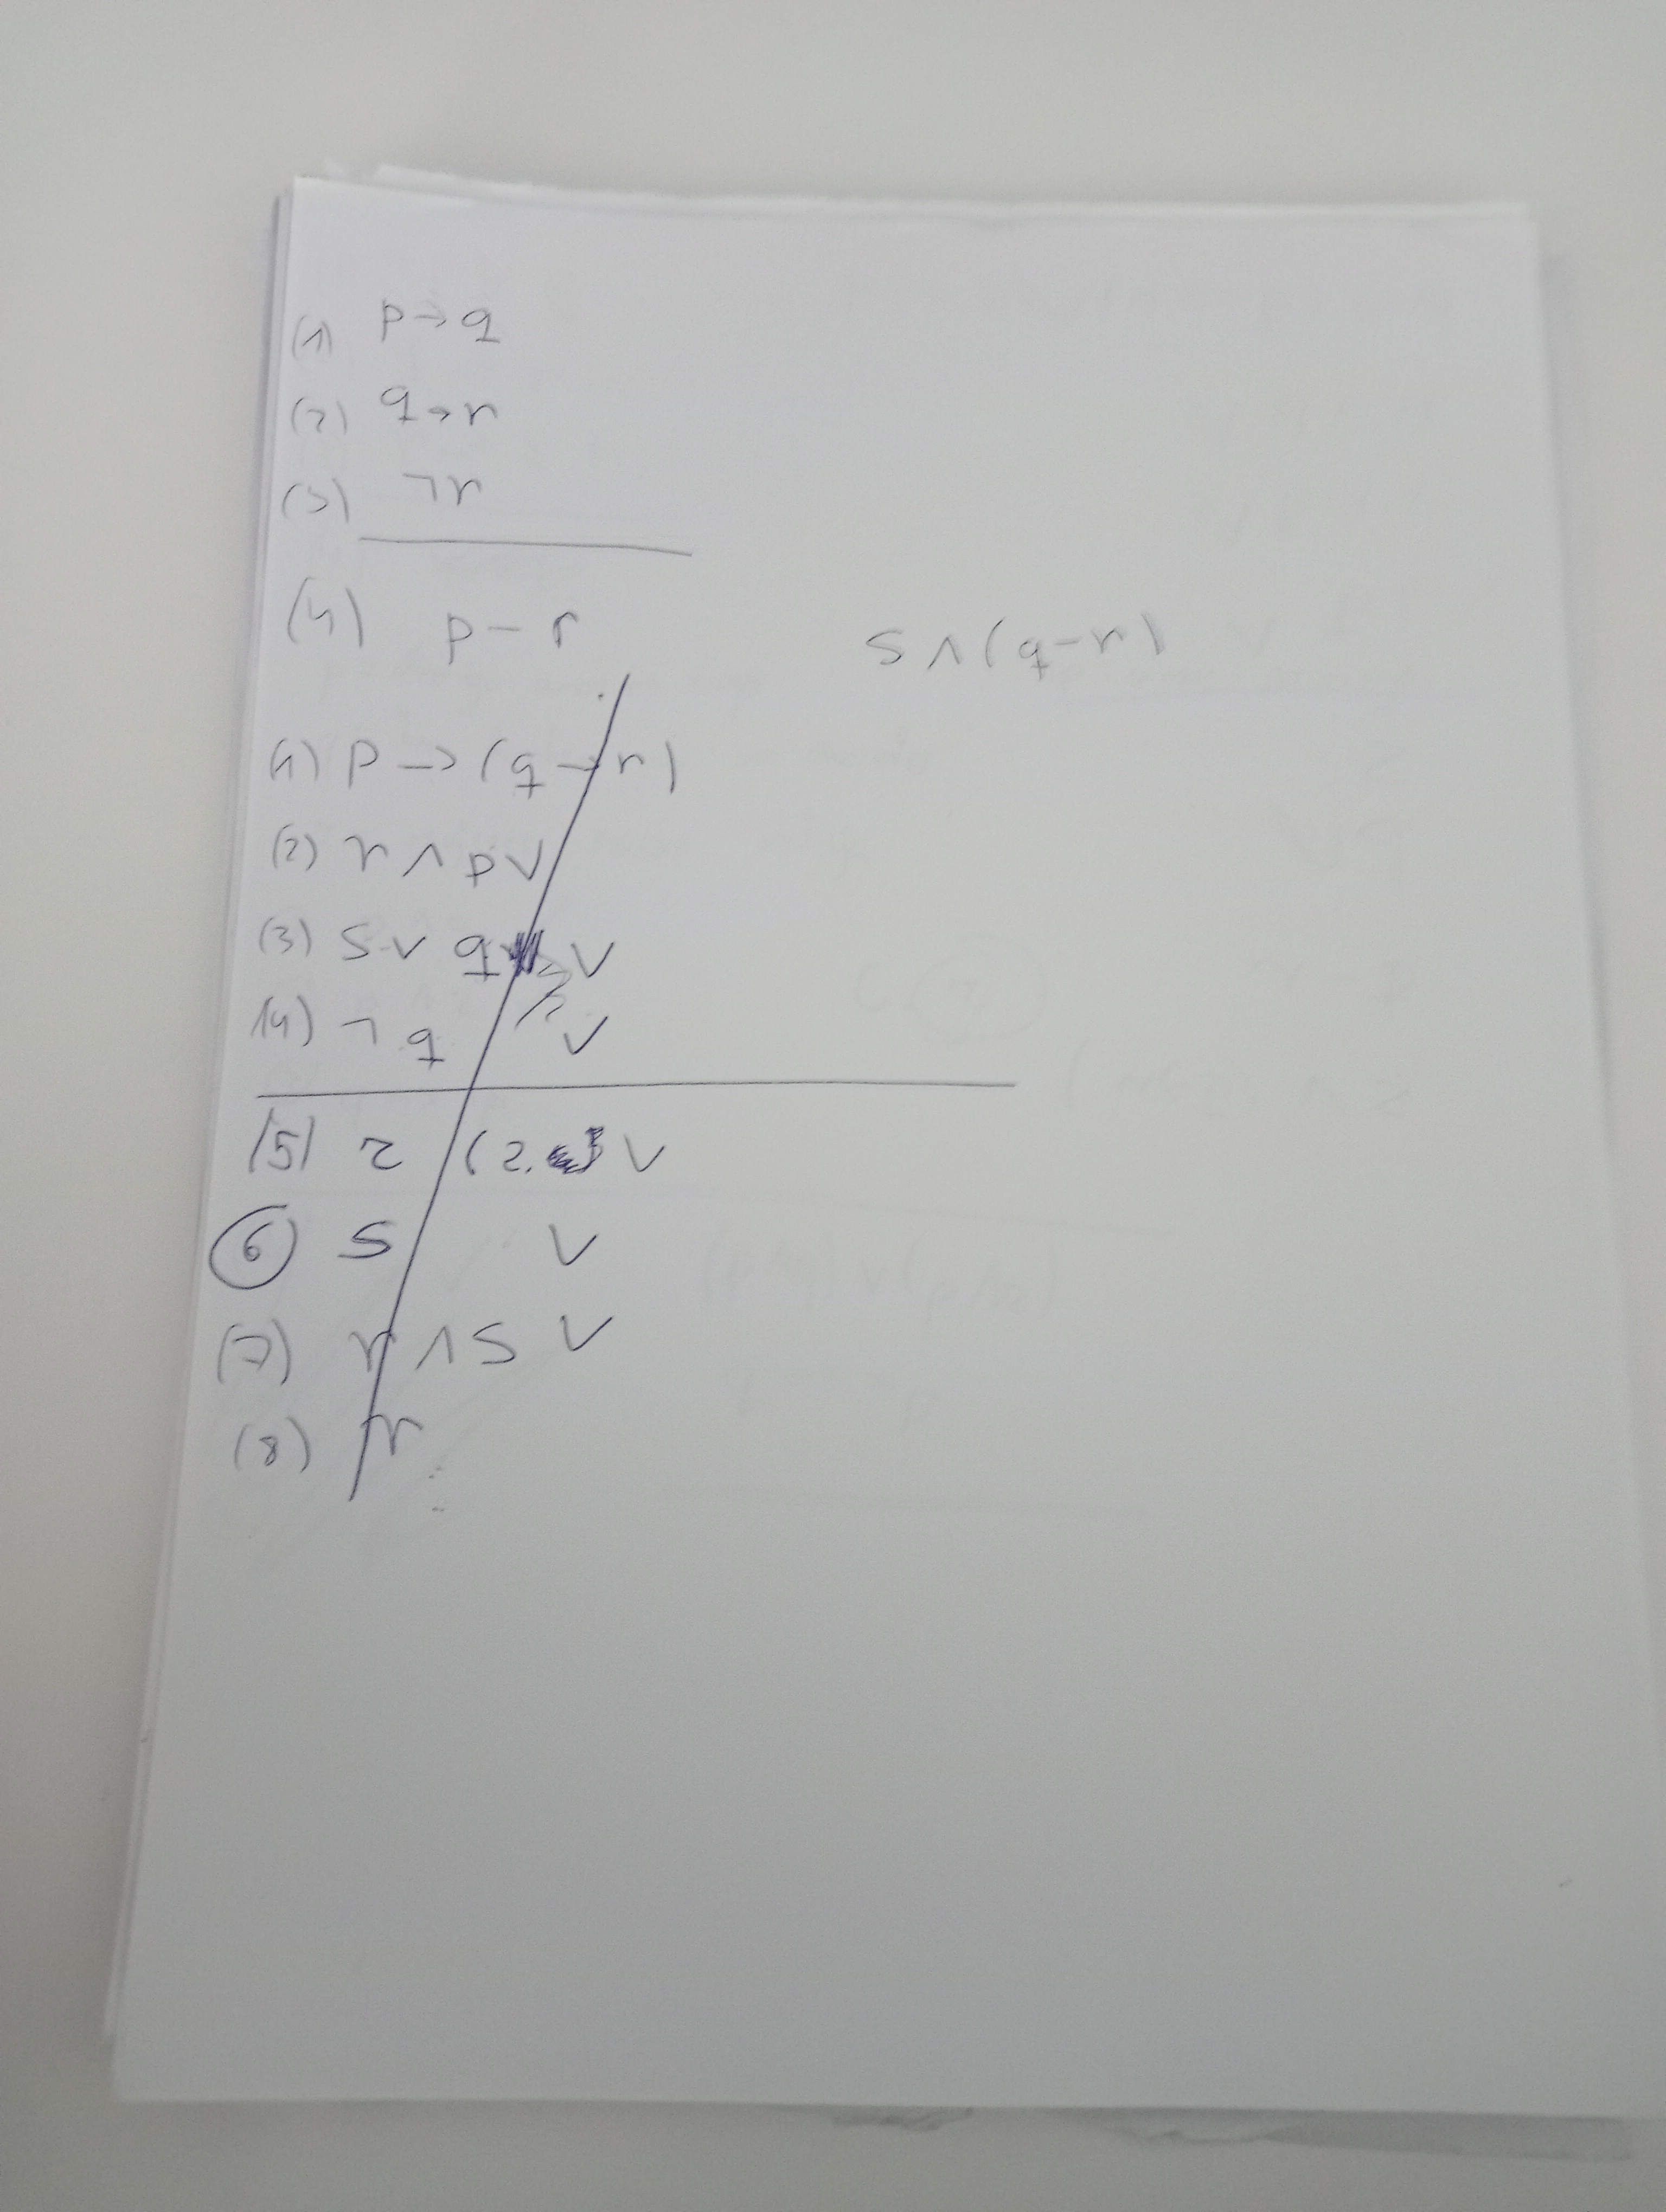 (1) p→q
(2) q→r
(3) ¬r
(4) p–r
s∧(q–r)
(1) p→(q→r)
(2) r∧p ∨
(3) s∨q ∨
(4) ¬q ∨
(5) r (2. ∨
6 s ∨
(7) r∧s ∨
(8) r